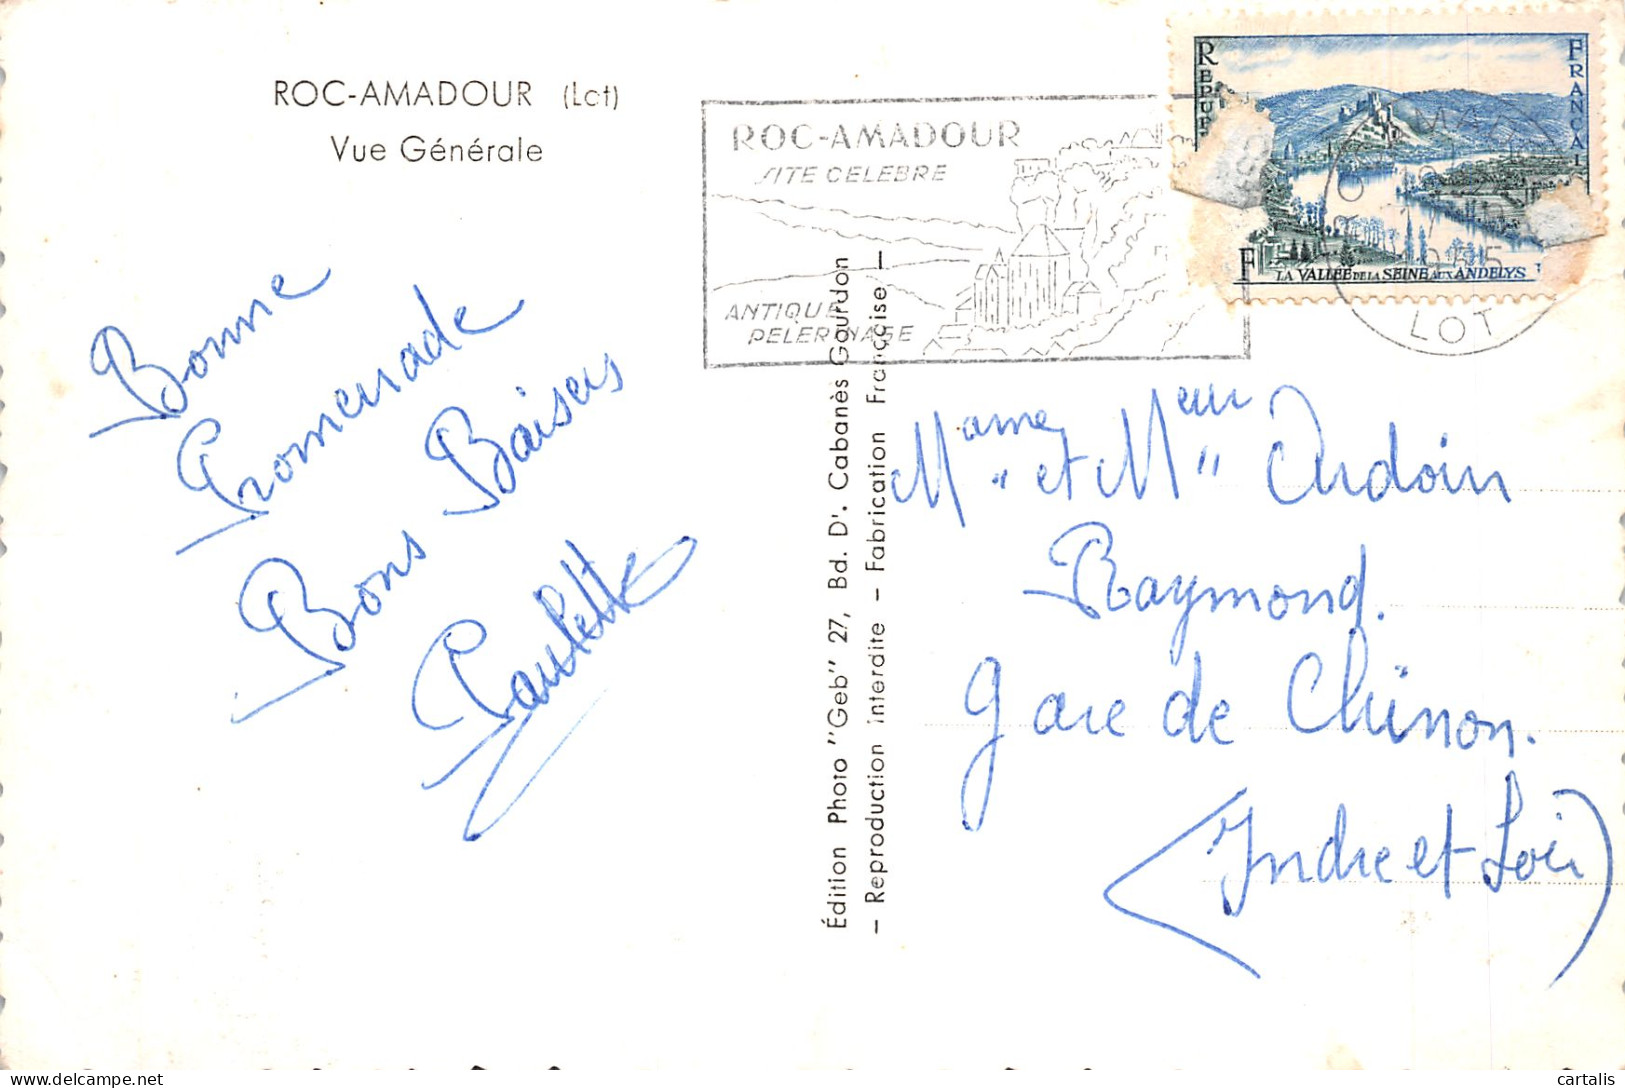 ROC-AMADOUR (Lot)
Vue Générale
ROC-AMADOUR
SITE CELEBRE
ANTIQUE
PELERINAGE
FRANCAI
LA VALLÉE DE LA SEINE AUX ANDELYS
F
LOT
Bonne
Promenade
Bons Baisers
Paulette
Édition Photo "Geb" 27, Bd. Dr. Cabanès Gourdon
— Reproduction interdite — Fabrication Française —
Mame et Meur Ardoin
Raymond.
gare de Chinon.
(Indre et Loir)
cartalis